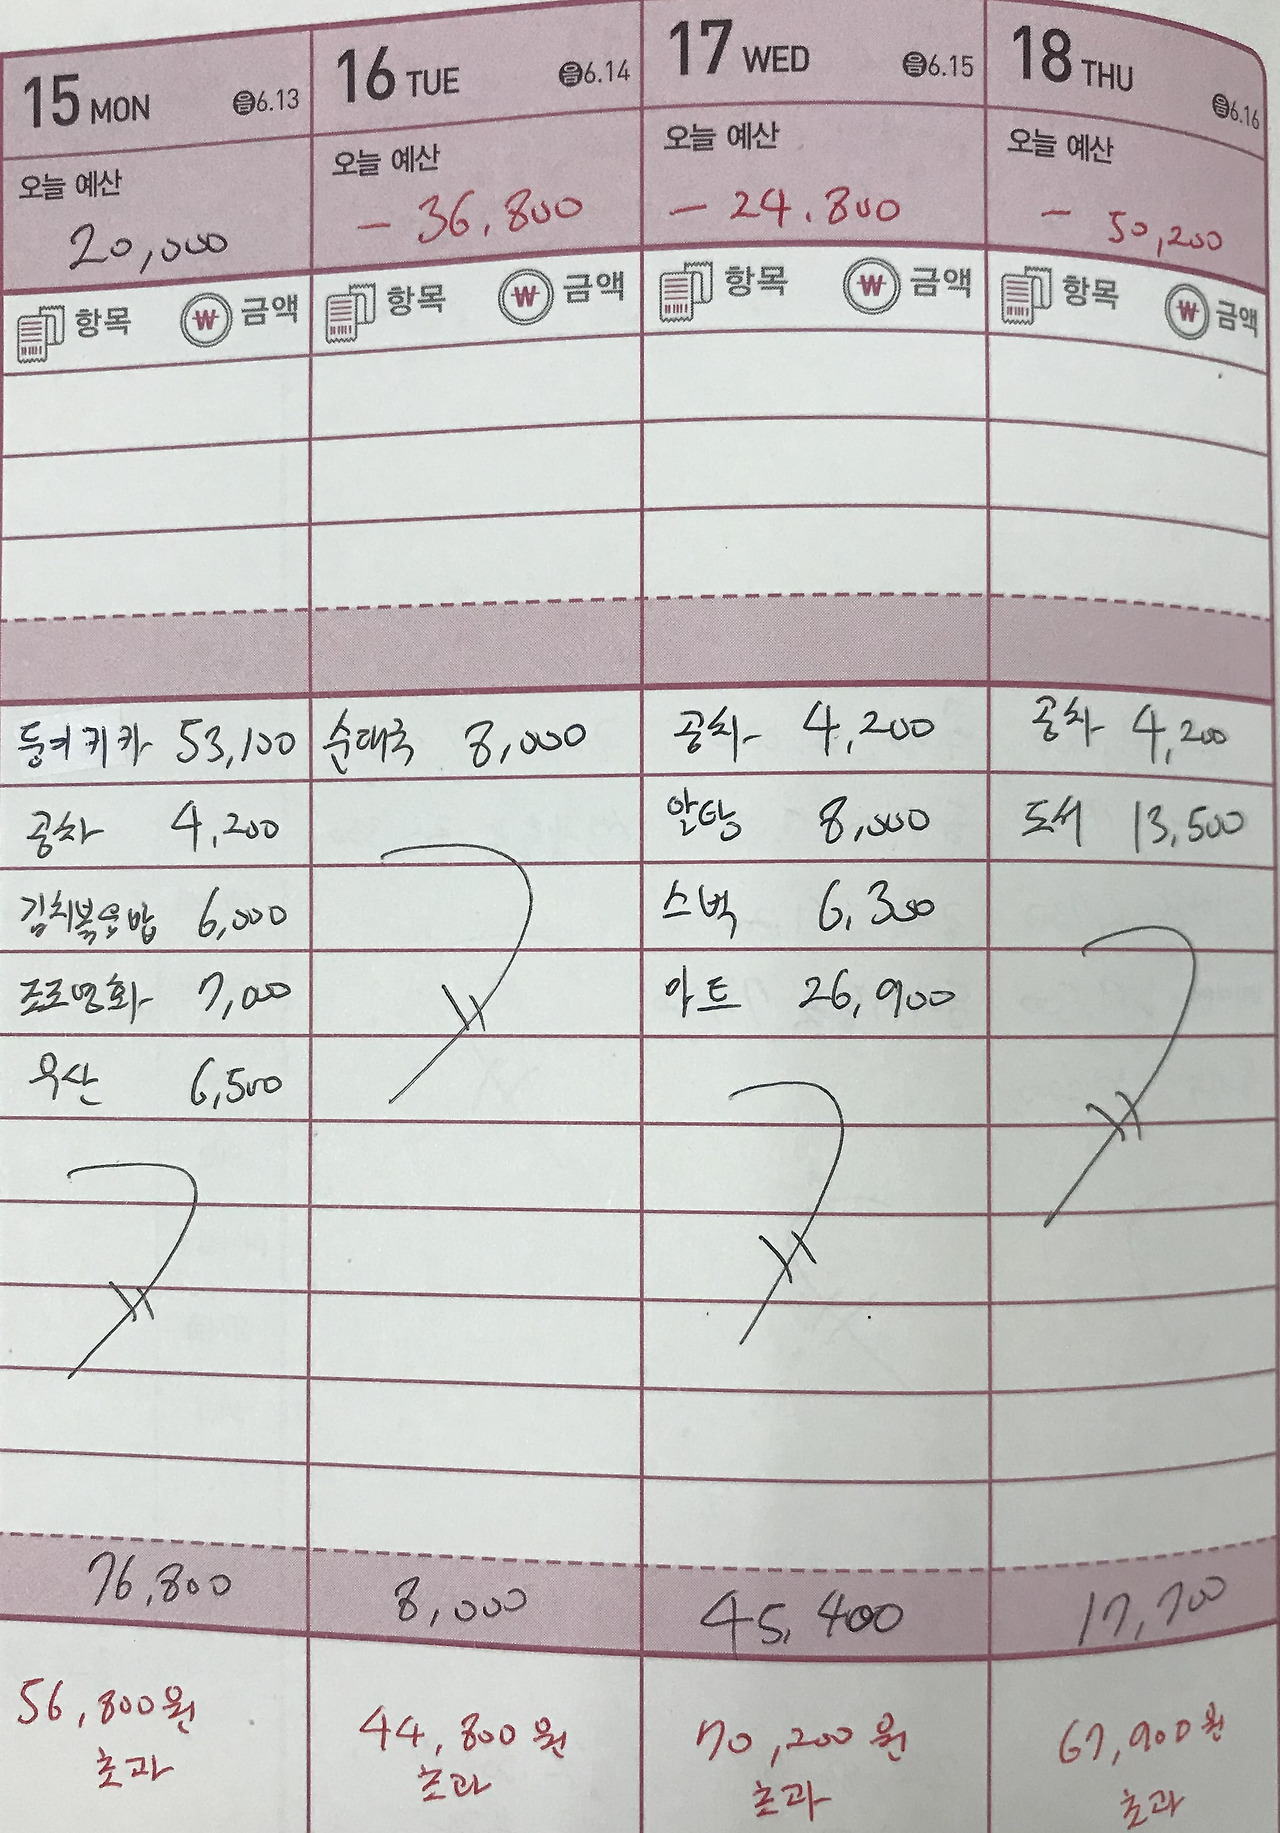 15 MON 음6.13
오늘 예산
20,000
항목 금액
둥키키카 53,100
공차 4,200
김치볶음밥 6,000
조조영화 7,000
우산 6,500
76,800
56,800원
초과
16 TUE 음6.14
오늘 예산
- 36,800
항목 ₩ 금액
순대국 8,000
8,000
44,800원
초과
17 WED 음6.15
오늘 예산
- 24,800
항목 ₩ 금액
공차 4,200
알탕 8,000
스벅 6,300
아트 26,900
45,400
70,200원
초과
18 THU 음6.16
오늘 예산
- 50,200
항목 ₩ 금액
공차 4,200
도서 13,500
17,700
67,900원
초과